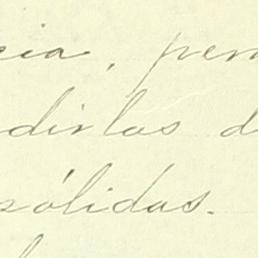 cia, pen
dirlas d
sólidas.